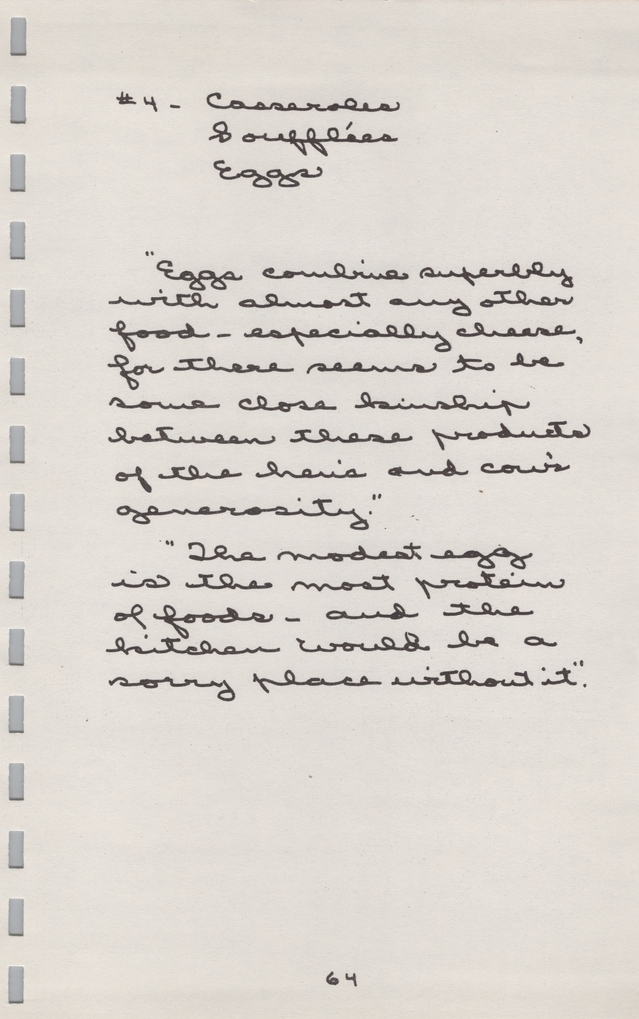 #4 - Casseroles
Soufflées
Eggs
"Eggs combine superbly
with almost any other
food - especially cheese,
for there seems to be
some close kinship
between these products
of the hen's and cow's
generosity."
"The modest egg
is the most protein
of foods - and the
kitchen would be a
sorry place without it".
64